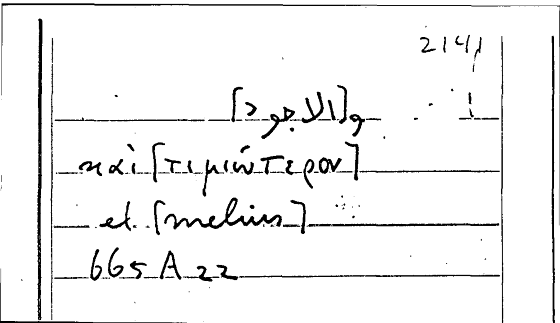 2141
و[الاجود]
1
καὶ [τιμιώτερον]
et [melius]
665 A 22